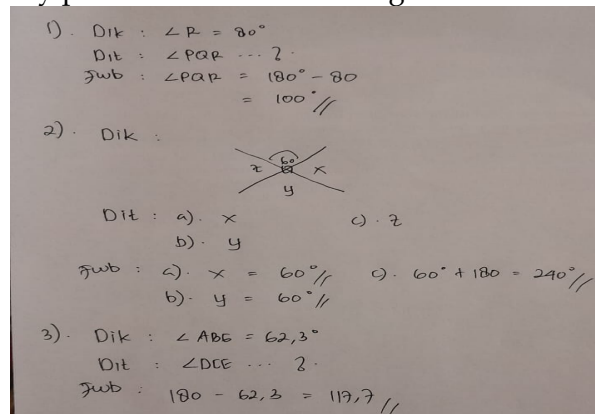 1). Dik : ∠R = 80°
Dit : ∠PQR ... ?
Jwb : ∠PQR = 180° - 80
= 100°//
2). Dik :
60
z x
y
Dit : a). x c). z
b). y
Jwb : a). x = 60°// c). 60° + 180 = 240°//
b). y = 60°//
3). Dik : ∠ABE = 62,3°
Dit : ∠DCE ... ?.
Jwb : 180 - 62,3 = 117,7//